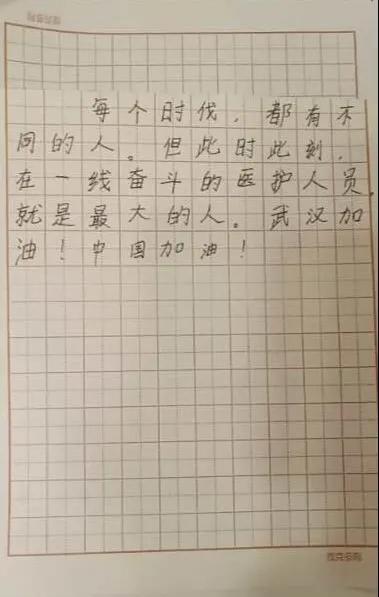 每个时伐，都有不
同的人。但此时此刻，
在一线奋斗的医护人员，
就是最大的人。武汉加
油！中国加油！